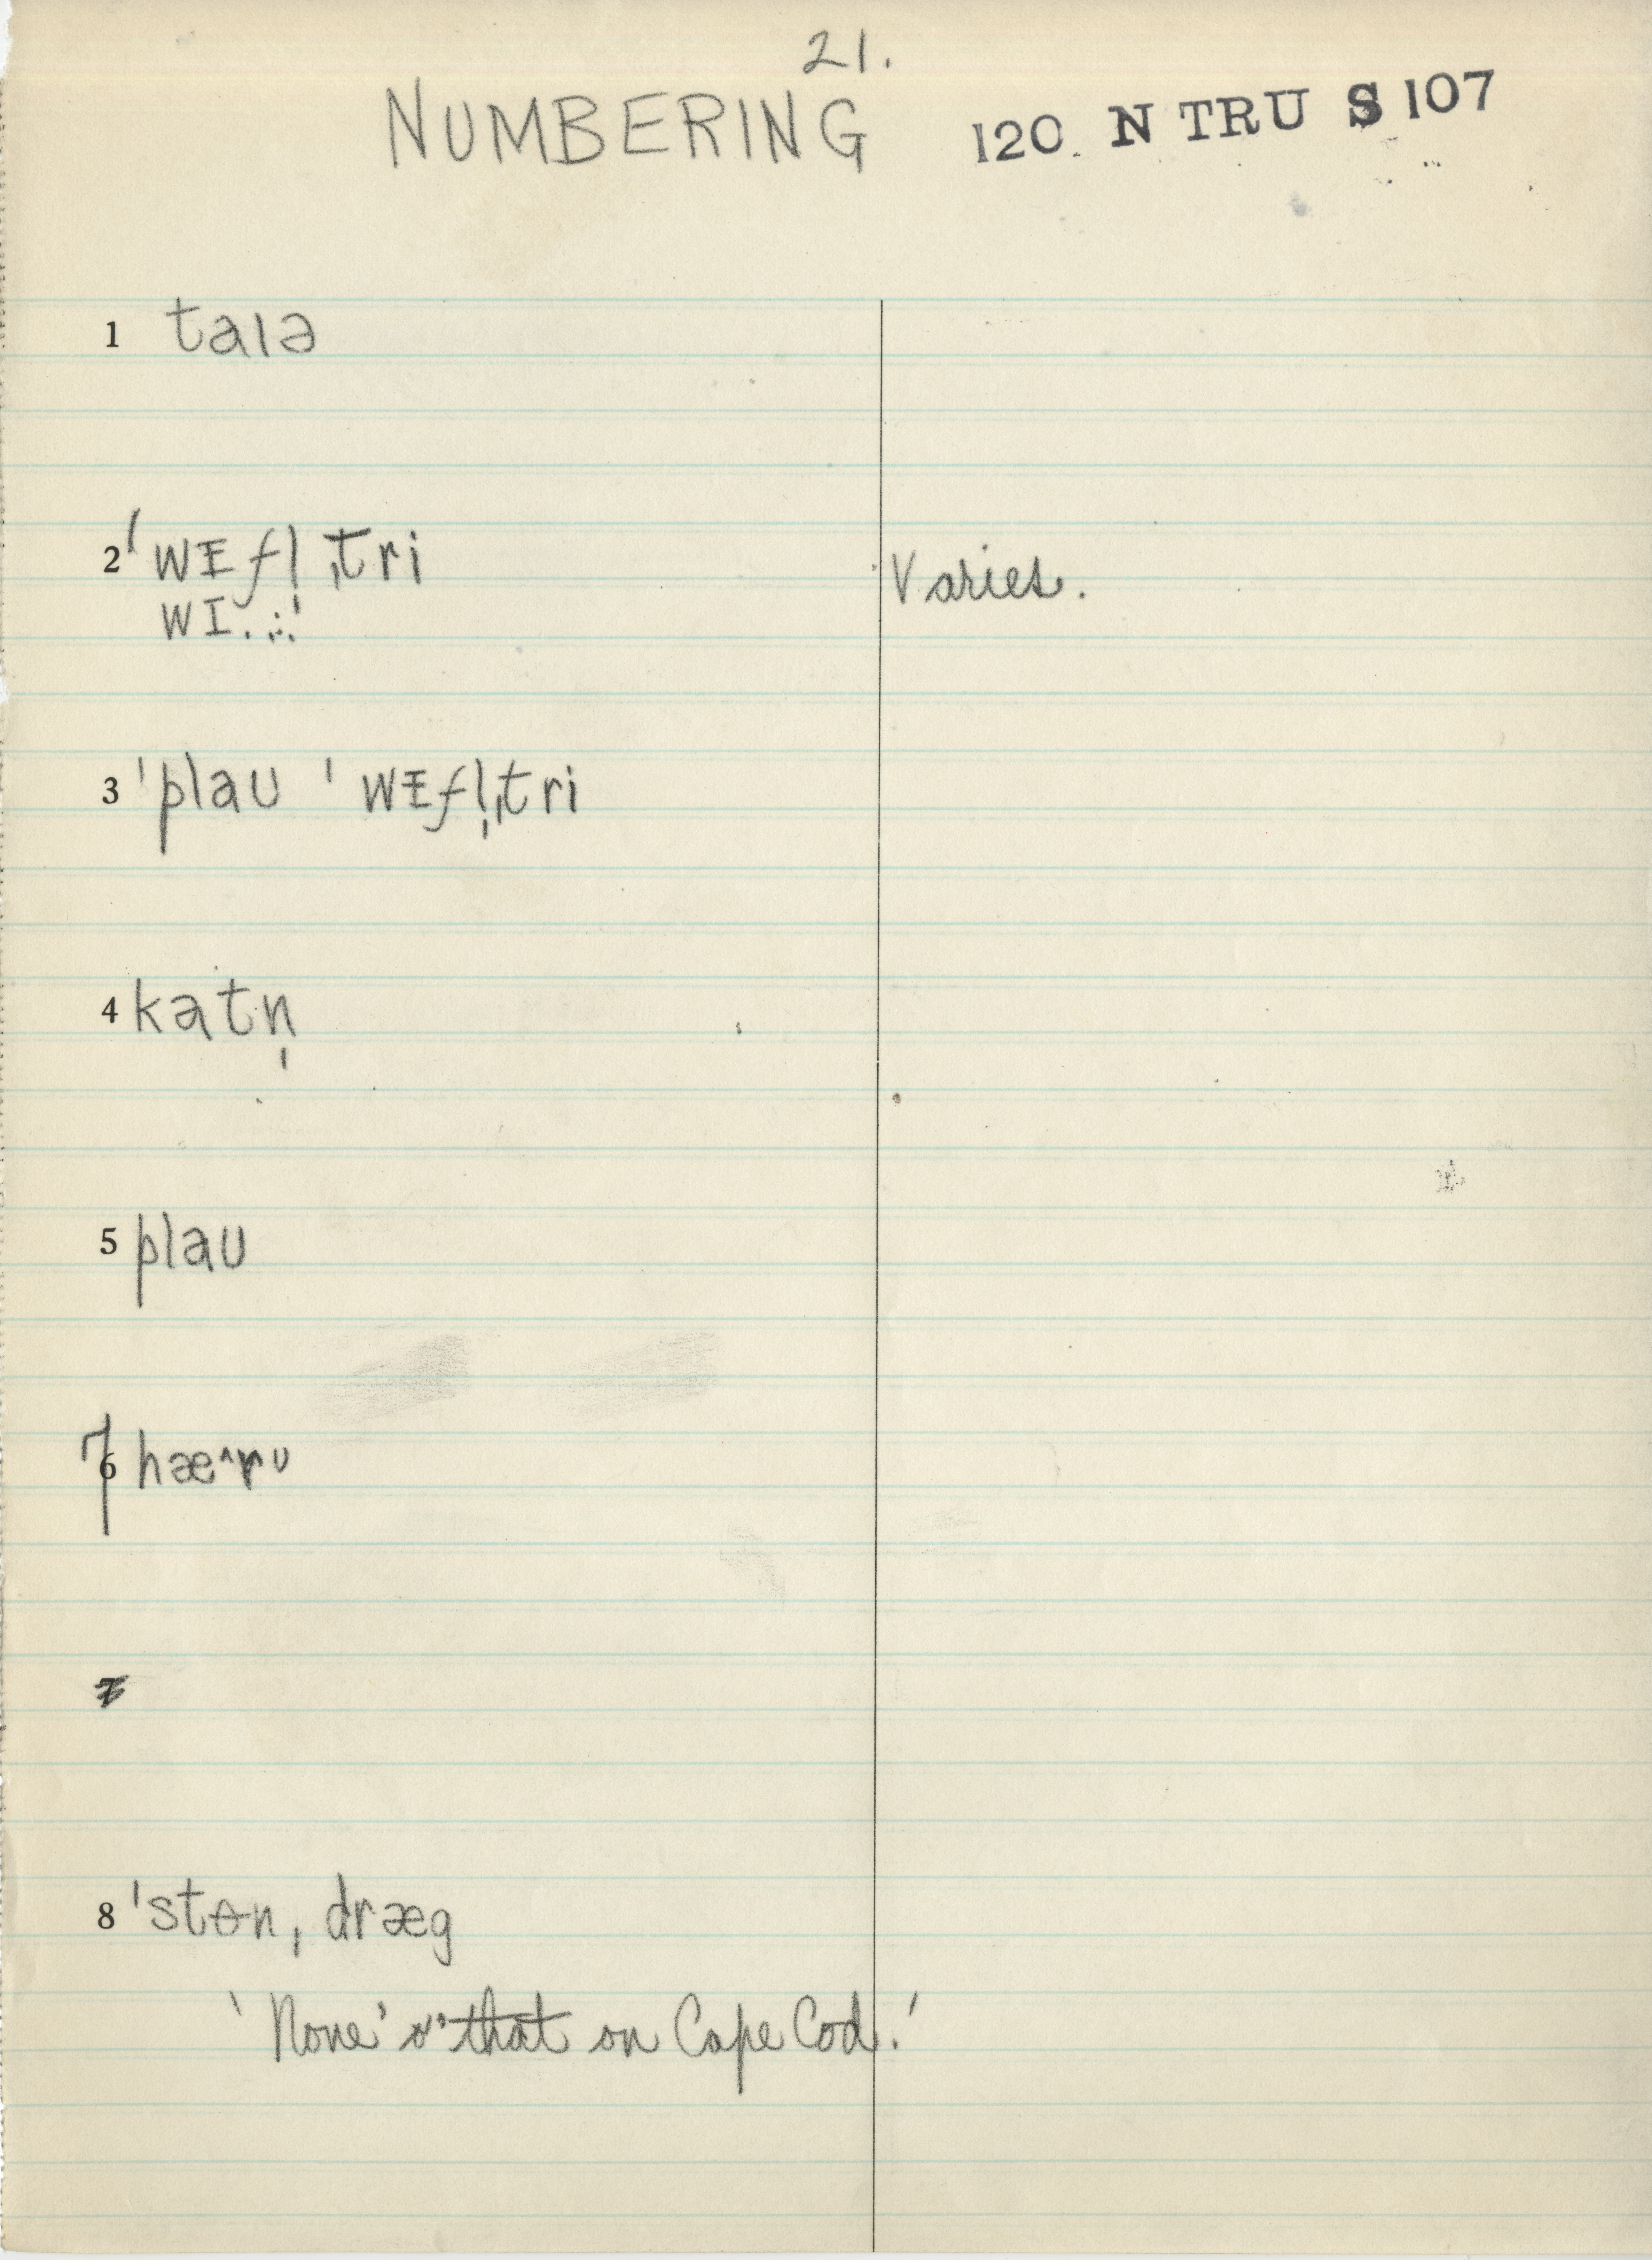 21.
NUMBERING 120 N TRU S 107
1 taɪə
2 ˈwᵻfl̩ˌtri Varies.
wɪ . ..ˈ
3 ˈplaʊ ˈwᵻfl̩ˌtri
4 katn̩
5 plaʊ
7 hæ^rᴜ
8 ˈstɵnˌdræg
‘None’ o’ that on Cape Cod.’